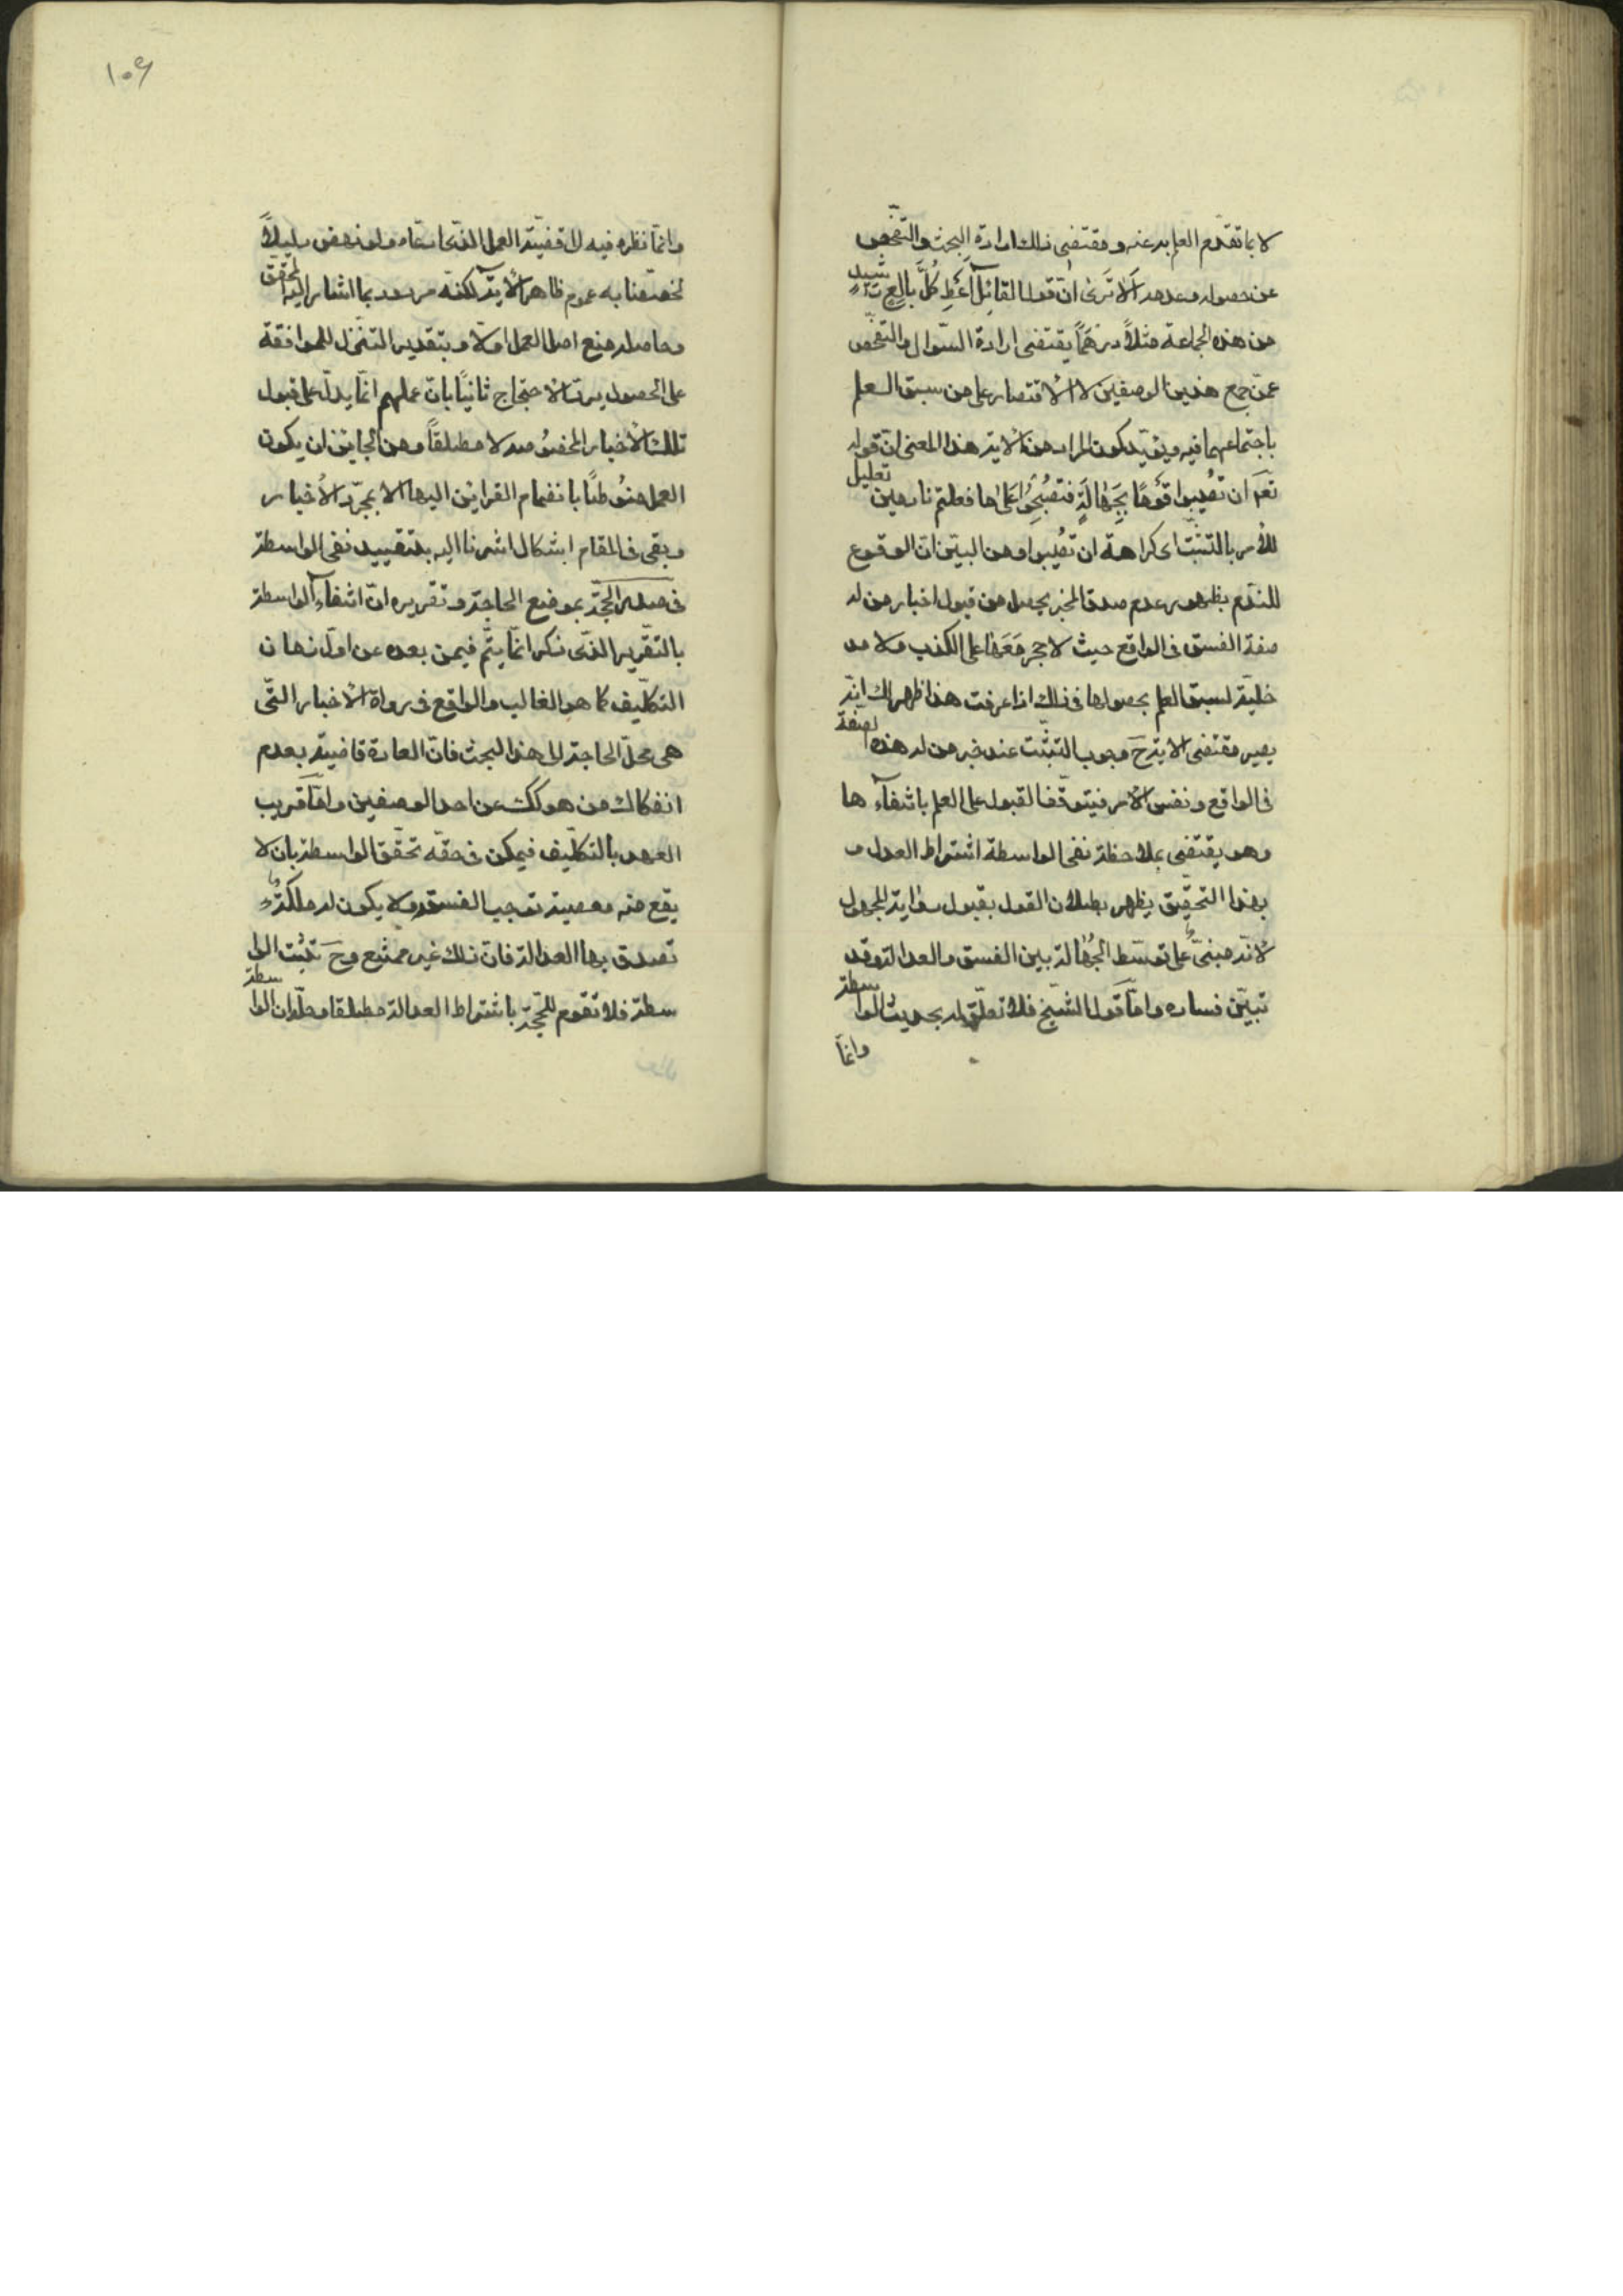 لا بما تقدّم العلم به عنه و مقتضى ذلك ارادة البحث و التفحّص
عن حصوله و عدمه اَلا تَرى انّ قول القائل اَعْطِ كُلَّ بالِغٍ رَشيدٍ
من هذه الجماعة مثلاً درهمًا يقتضى ارادة السّؤال و التفحّص
عمّن جمع هذين الوصفين لا الاقتصار على من سبق العلم
باجتماعهما فيه و يؤيّد كون المراد من الآية هذا المعنى انّ قوله
تعَ اَن تُصيبوا قَومًا بِجَهالَةٍ فَتُصْبِحُوا عَلى ما فعلتم نادمين تعليل
للأمر بالتثبّت اى كراهة ان تُصيبوا و من البيّن انّ الوقوع
للندم بظهور عدم صدق المخبر يحصل من قبول اخبار من له
صفة الفسق فى الواقع حيث لا حجر مَعَها على الكذب و لا مد
خليّة لسبق العلم بحصولها فى ذلك اذا عرفت هذا ظهر لك انّه
يصير مقتضى الآية حَ وجوب التثبّت عند خبر من له هذه الصفة
فى الواقع و نفس الأمر فيتوقّف القبول على العلم بانتفاءها
و هو يقتضى بملاحظة نفى الواسطة اشتراط العدل و
بهذا التحقيق يظهر بطلان القول بقبول رواية المجهول
لانّه مبنىّ على توسّط الجُهالة بين الفسق و العدالة و قد
تبيّن فساده و امّا قول الشيخ فلا تعلّق له بحديث الواسطة
وانمّا
١٠٤
وانمّا نظره فيه الى قضيّة العمل الذى ادعاه و لو نهض دليلاً
لخصّصنا به عموم ظاهر الآية لكنّه مردود بما اشار اليه المحقّق
و حاصله منع اصل العمل اوّلا و بتقدير التنزّل للموافقة
على الحصول يردّ الاحتجاج ثانيًا بانّ عملهم انّما يدلّ على قبول
تلك الأخبار المخصُوصه لا مطلقًا و من الجايز ان يكون
العمل منوُطًا بانضمام القراين اليها لا بمجرّد الأخبار
و بقى فى المقام اشكال اشرنا اليه بتقييد نفى الواسطة
فى صدر الحجّة بموضع الحاجة و تقريره انّ انتفاء الواسطة
بالتقرير الذّى ذكر انّما يتمّ فيمن بعده عن اوّل زمان
التكليف كما هو الغالب و الواقع فى رواة الأخبار التّى
هى محلّ الحاجة الى هذا البحث فانّ العادة قاضية بعدم
انفكاك من هو كك عن احد الوصفين و امّا قريب
العهد بالتكليف فيمكن فى حقّه تحقّق الواسطة بان لا
يقع منه معصية توجب الفسق و لا يكون له ملكةٌ
تصدق بها العدالة فانّ ذلك غير ممتنع و حَ تثبُت الوا
سطة فلا تقوم الحجّة باشتراط العدالة مطلقا و حلّه ان الواسطة